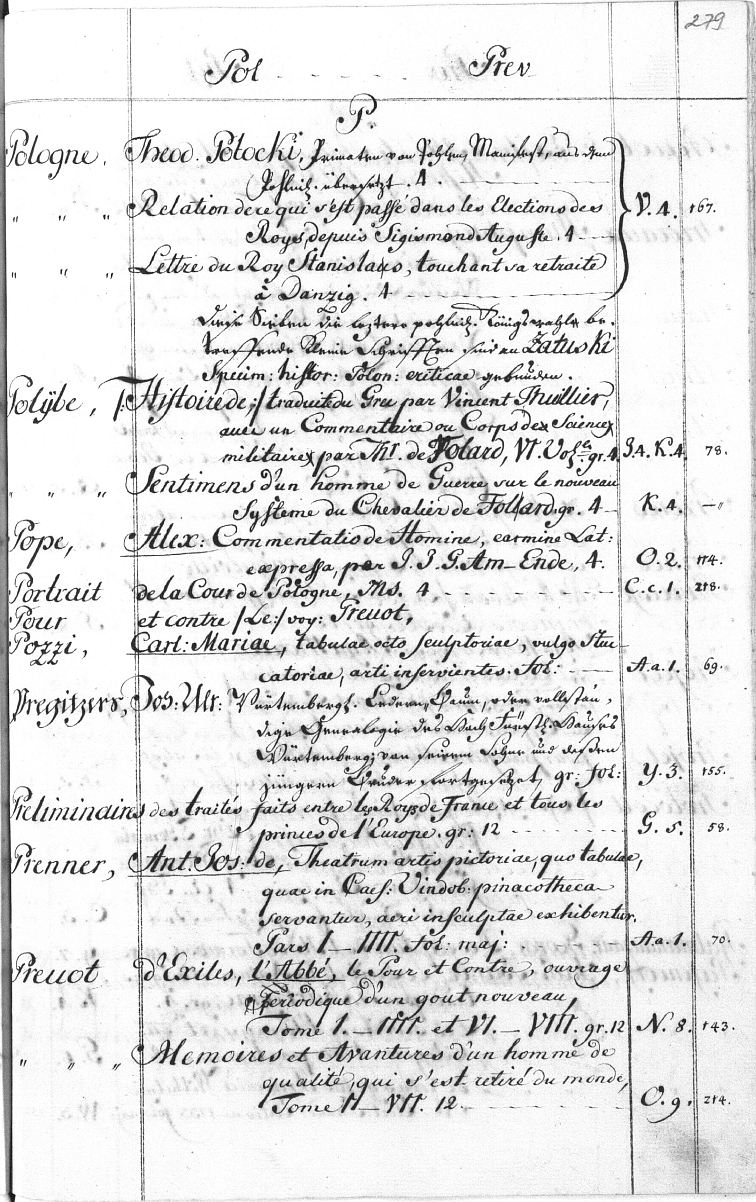 279
Pol - - - - Prev
P.
Pologne, Theod. Potocki, Primaten von Pohlen, Manifest, aus dem
Pohlnis. übersetzt. 4.
" " " Relation de ce qui s'est passé dans les Elections des
Roys, depuis Sigismond Auguste. 4 V. 4. 167.
" " " Lettre du Roy Stanislaus, touchant sa retraite
à Danzig. 4
diese Sieben die leztere pohlnis. Königswahl be-
treffende kleine Schrifften sind an Zaluski
Specim: histor: Polon: criticae gebunden.
Polÿbe, /: Histoire de :/ traduite du Grec par Vincent Thuillier,
avec un Commentaire ou Corps de Science
militaire par Mr. de Folard, VI. Vol. gr. 4 J.4. K.4. 78.
" " " Sentimens d'un homme de Guerre sur le nouveau
Systeme du Chevalier de Folard. gr. 4 K. 4. —"
Pope, Alex: Commentatio de Homine, carmine Lat:
expressa, per J. J. G. Am-Ende, 4. O. 2. 174.
Portrait de la Cour de Pologne, Ms. 4. C.c.1. 218.
Pour et contre /Le:/ voy: Prevot,
Pozzi, Carl: Mariae, tabulae octo sculptoriae, vulgo stuc-
catoriae, arti inservientes. Fol: A.a.1. 69.
Pregitzers, Jos: Ulr: Würtemberg. Cedern-Baum, oder vollstän-
dige Genealogie des Hoch Fürstl. Hauses
Würtemberg; von seinem Sohne und dessen
jüngern Bruder fortgesetzet, gr: fol: Y. 3. 155.
Preliminaires des traités faits entre les Roys de France et tous les
princes de l'Europe. gr: 12 G. 5. 58.
Prenner, Ant. Jos: de, Theatrum artis pictoriae, quo tabulae,
quae in Caes: Vindob: pinacotheca
servantur, aeri insculptae exhibentur.
Pars I — IIII. fol: maj: A.a.1. 70.
Prevot d'Exiles, l'Abbé, le Pour et Contre, ouvrage
Periodique d'un gout nouveau,
Tome I. — IIII. et VI. — VIII. gr. 12 N. 8. 143.
" " " Memoires et Avantures d'un homme de
qualité, qui s'est retiré du monde,
Tome II — VII. 12. O. 9. 214.